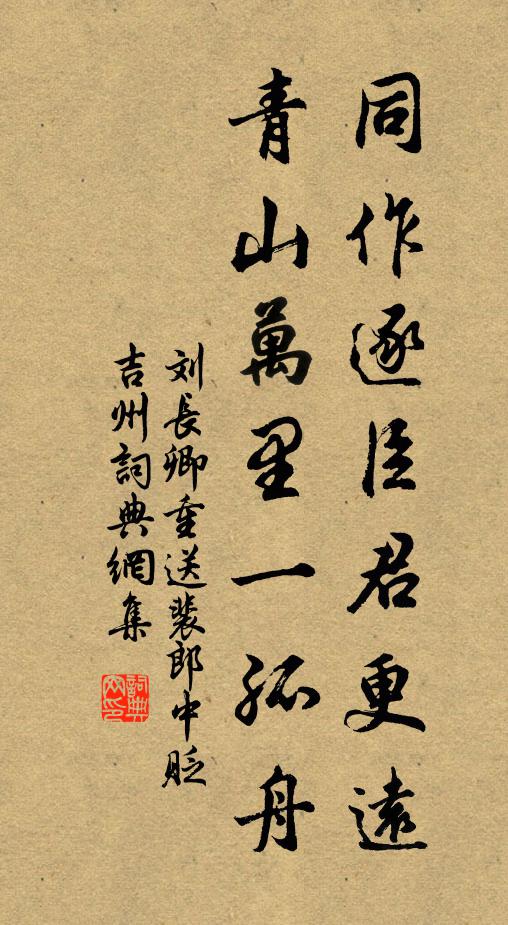 同作逐臣君更遠
青山萬里一孤舟
刘長卿重送裴郎中貶
吉州詞典網集
詞典網印